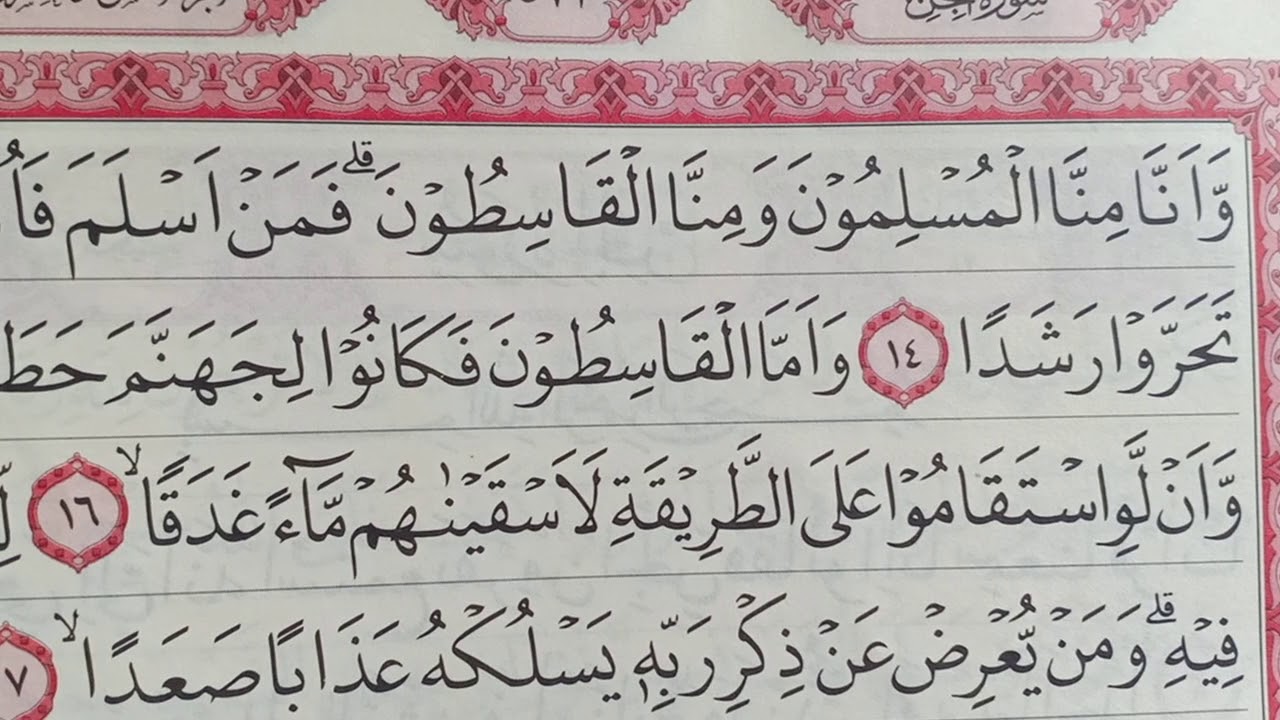 سورة الجن
وَّاَنَّا مِنَّا الْمُسْلِمُوْنَ وَمِنَّا الْقَاسِطُوْنَ ۗ فَمَنْ اَسْلَمَ
تَحَرَّوْا رَشَدًا ١٤ وَاَمَّا الْقَاسِطُوْنَ فَكَانُوْا لِجَهَنَّمَ
وَّاَنْ لَّوِ اسْتَقَامُوْا عَلَى الطَّرِيْقَةِ لَاَسْقَيْنٰهُمْ مَّاۤءً غَدَقًا ۙ ١٦
فِيْهِ ۗ وَمَنْ يُّعْرِضْ عَنْ ذِكْرِ رَبِّهٖ يَسْلُكْهُ عَذَابًا صَعَدًا ۙ